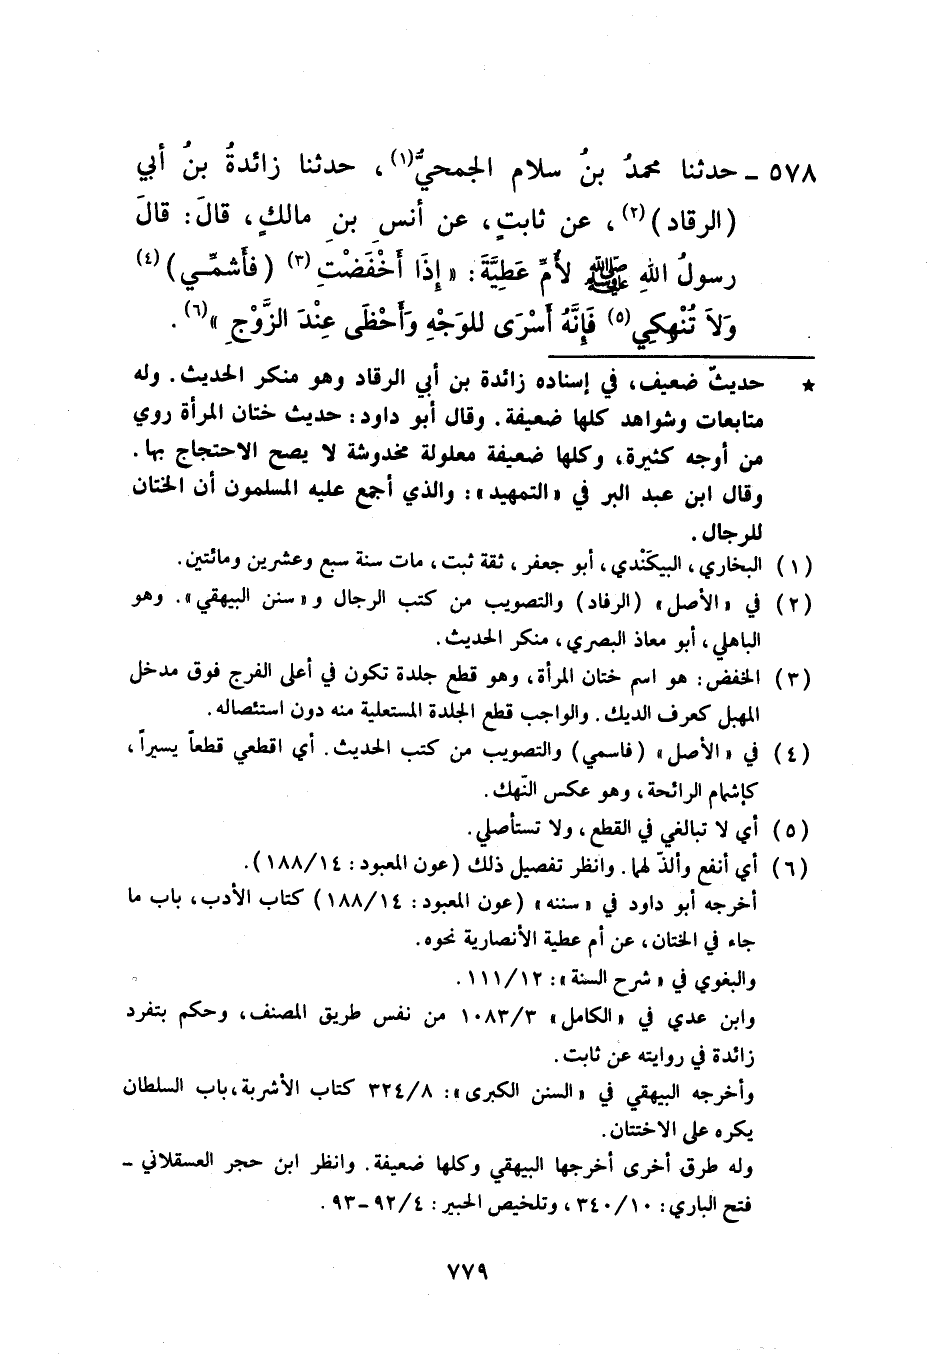 ٥٧٨ ـ حدثنا محمدُ بنُ سلام الجمحيُّ(١)، حدثنا زائدةُ بنُ أبي
(الرقاد)(٢)، عن ثابتٍ، عن أنسِ بنِ مالكٍ، قالَ: قالَ
رسولُ اللهِ ﷺ لأُمِّ عَطِيَّةَ: «إِذَا أَخْفَضْتِ(٣) (فأَشمِّي)(٤)
وَلاَ تُنْهِكِي(٥) فَإِنَّهُ أَسْرَى للوَجْهِ وَأَحْظَى عِنْدَ الزَّوْجِ»(٦).
★ حديثٌ ضعيف، في إسناده زائدة بن أبي الرقاد وهو منكر الحديث. وله
متابعات وشواهد كلها ضعيفة. وقال أبو داود: حديث ختان المرأة روي
من أوجه كثيرة، وكلها ضعيفة معلولة مخدوشة لا يصح الاحتجاج بها.
وقال ابن عبد البر في «التمهيد»: والذي أجمع عليه المسلمون أن الختان
للرجال.
(١) البخاري، البيكَنْدي، أبو جعفر، ثقة ثبت، مات سنة سبع وعشرين ومائتين.
(٢) في «الأصل» (الرفاد) والتصويب من كتب الرجال و«سنن البيهقي». وهو
الباهلي، أبو معاذ البصري، منكر الحديث.
(٣) الخفض: هو اسم ختان المرأة، وهو قطع جلدة تكون في أعلى الفرج فوق مدخل
المهبل كعرف الديك. والواجب قطع الجلدة المستعلية منه دون استئصاله.
(٤) في «الأصل» (فاسمي) والتصويب من كتب الحديث. أي اقطعي قطعاً يسيراً،
كإشمام الرائحة، وهو عكس النّهك.
(٥) أي لا تبالغي في القطع، ولا تستأصلي.
(٦) أي أنفع وألذّ لها. وانظر تفصيل ذلك (عون المعبود: ١٨٨/١٤).
أخرجه أبو داود في «سننه» (عون المعبود: ١٨٨/١٤) كتاب الأدب، باب ما
جاء في الختان، عن أم عطية الأنصارية نحوه.
والبغوي في «شرح السنة»: ١١١/١٢.
وابن عدي في «الكامل» ١٠٨٣/٣ من نفس طريق المصنف، وحكم بتفرد
زائدة في روايته عن ثابت.
وأخرجه البيهقي في «السنن الكبرى»: ٣٢٤/٨ كتاب الأشربة، باب السلطان
يكره على الاختتان.
وله طرق أخرى أخرجها البيهقي وكلها ضعيفة. وانظر ابن حجر العسقلاني ـ
فتح الباري: ٣٤٠/١٠، وتلخيص الحبير: ٩٢/٤ ـ ٩٣.
٧٧٩